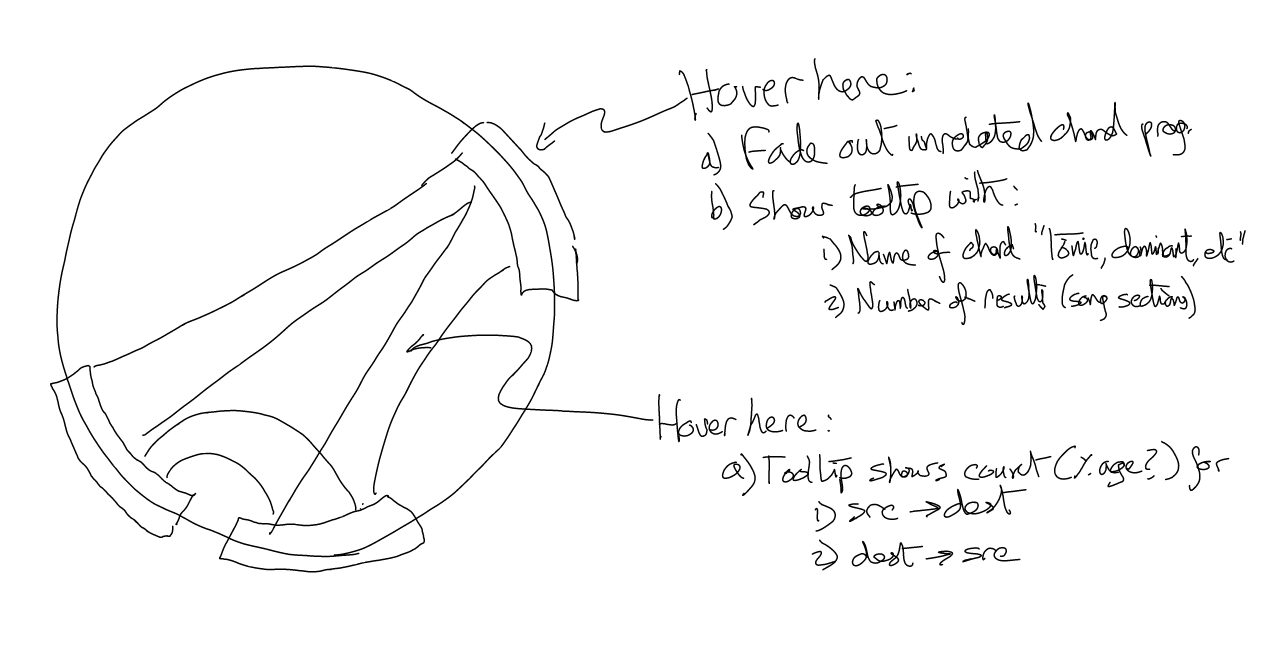 Hover here:
a) Fade out unrelated chord prog.
b) Show tooltip with:
1) Name of chord "Tonic, dominant, etc"
2) Number of results (song sections)
Hover here:
a) Tooltip shows count (%age?) for
1) src → dest
2) dest → src